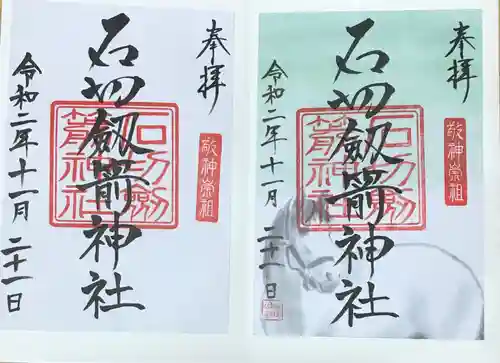 奉拝
石切劔箭神社
石切劔
箭神社
敬神崇祖
令和二年十一月二十一日
奉拝
石切劔箭神社
石切劔
箭神社
敬神崇祖
令和二年十一月二十一日